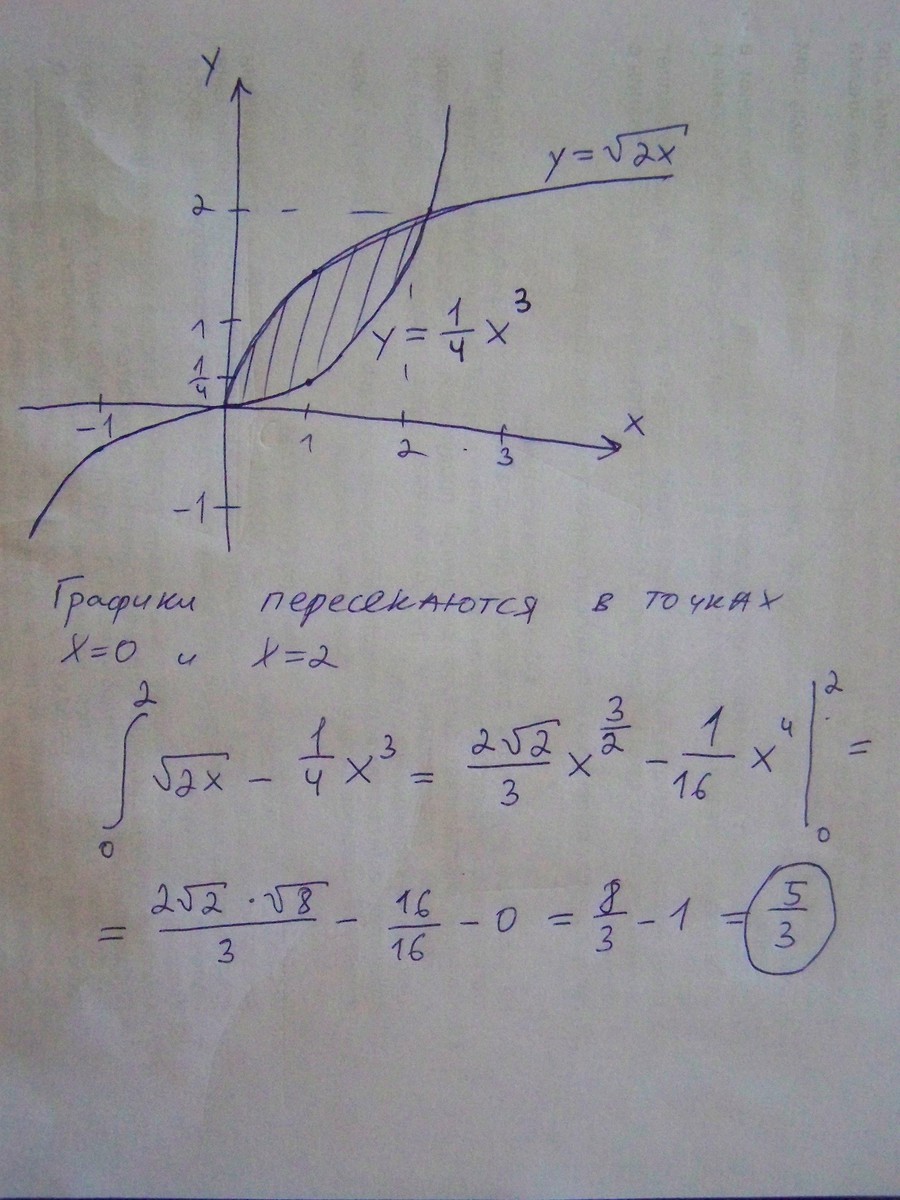 y
y = √2x
2
1
1/4
y = 1/4 x³
-1
1
2
3
x
-1
Графики пересекаются в точках
x=0 и x=2
∫₀² √2x - 1/4 x³ = 2√2/3 x^(3/2) - 1/16 x⁴ |₀² =
= 2√2 · √8/3 - 16/16 - 0 = 8/3 - 1 = 5/3